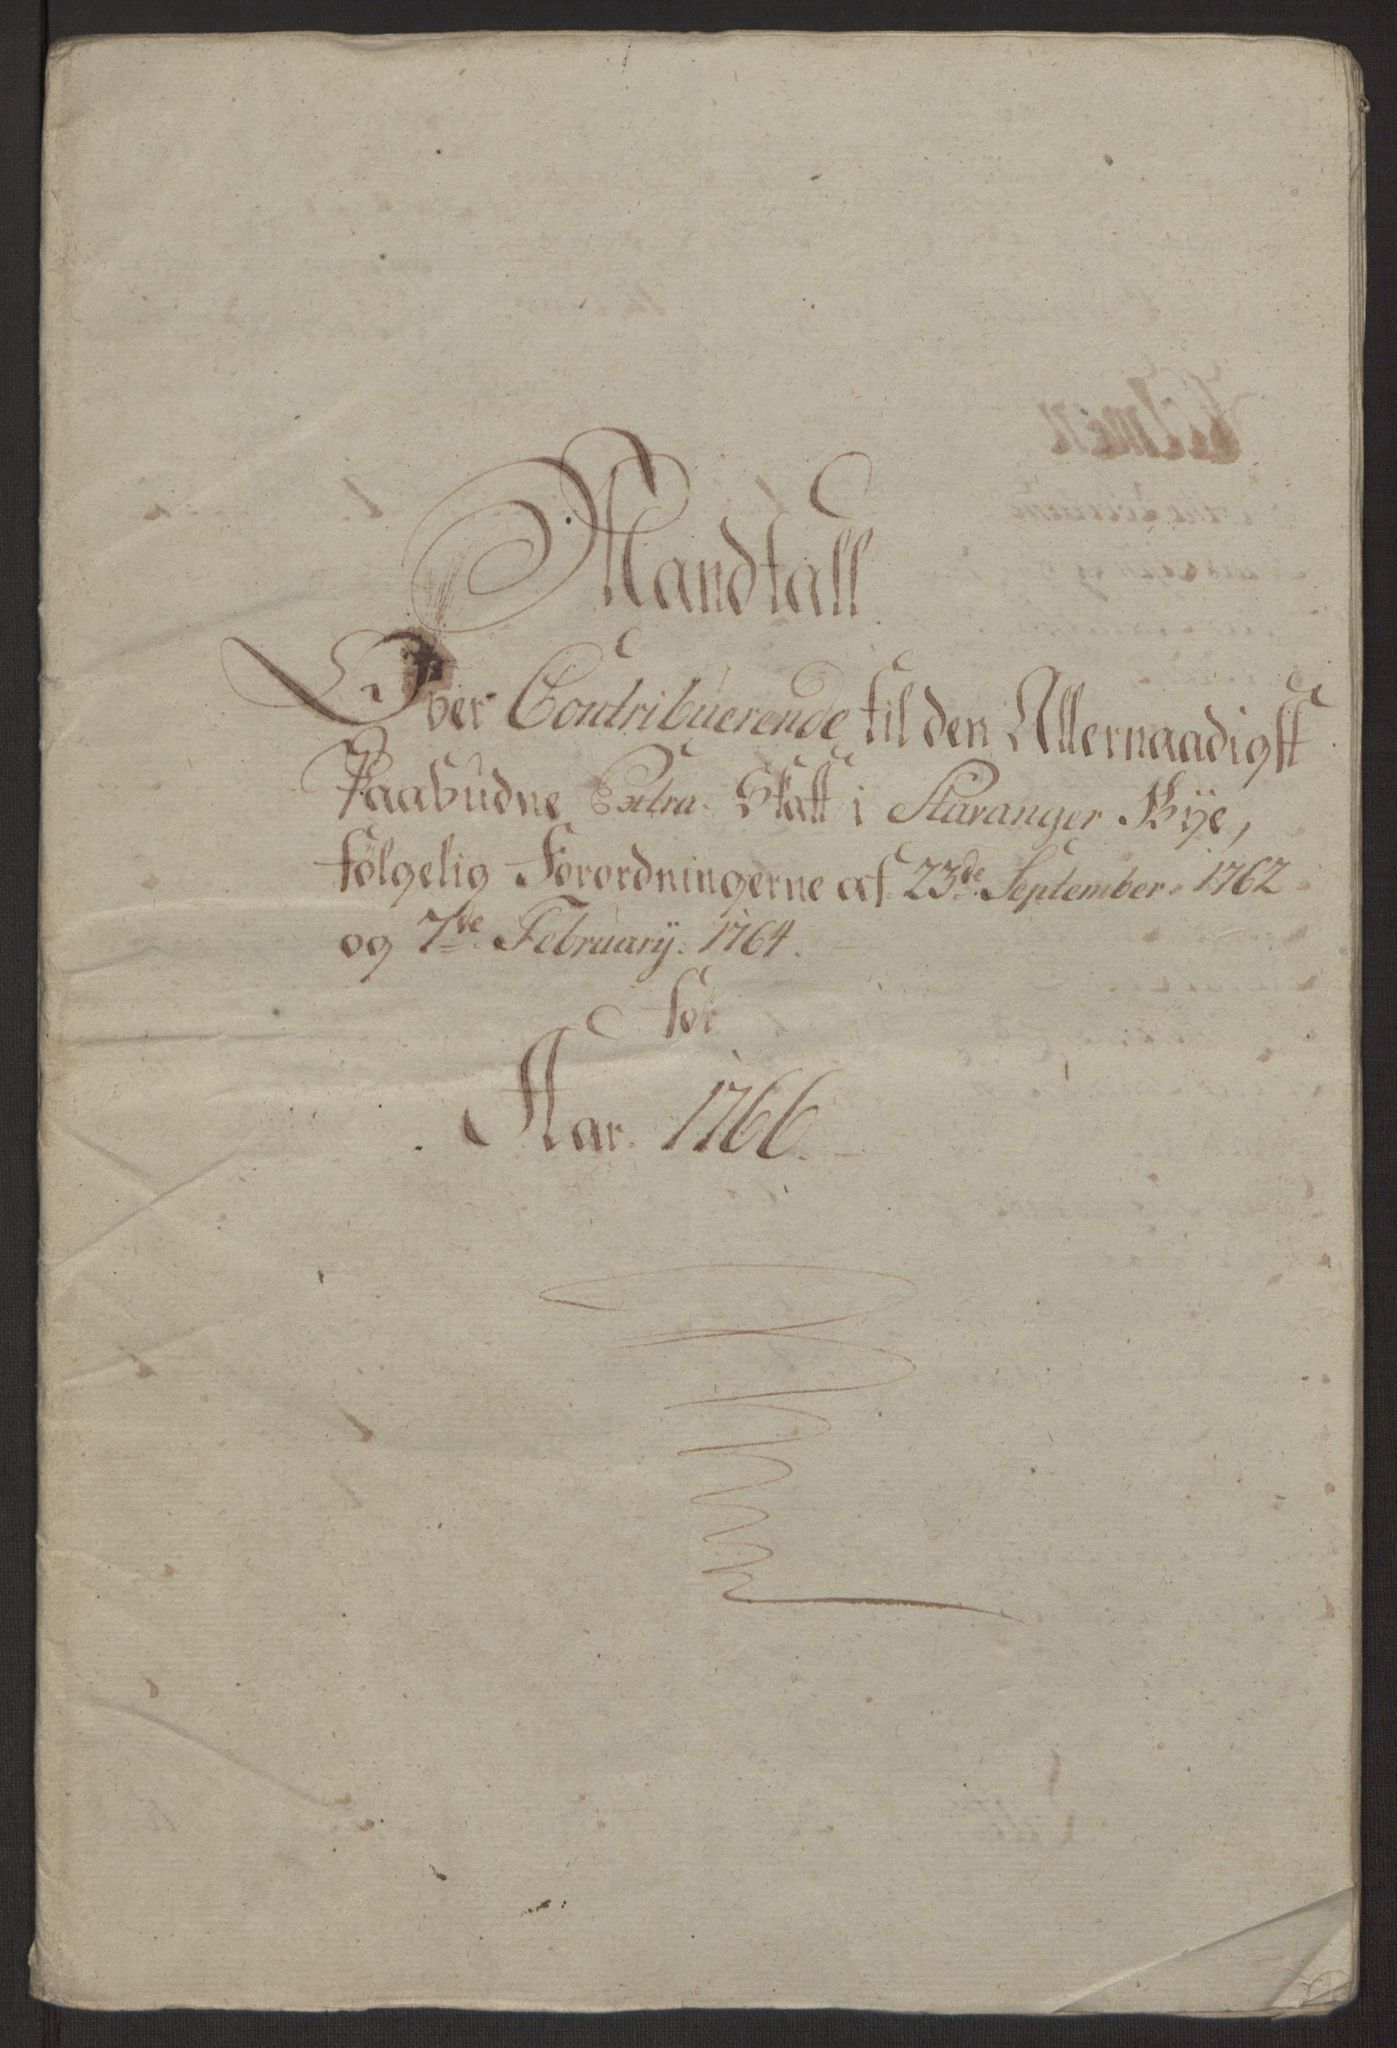 Mandtall
Over Contribuerende til den Allernaadigst
Paabudne Extra Skatt i Stavanger Bÿe,
følgelig Forordningerne af 23de September 1762
og 7de Februarÿ 1764.
for
Aar 1766.